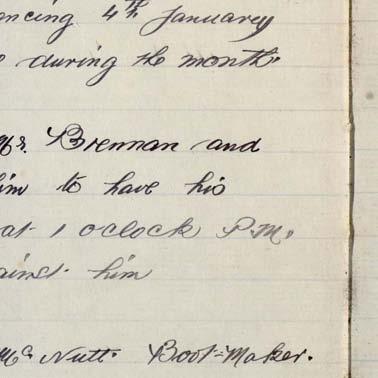 encing 4th Januarey
during the month.
Mr. Brennan and
him to have his
at 1 oclock P.M.
ainst him
McNutt Boot-Maker.